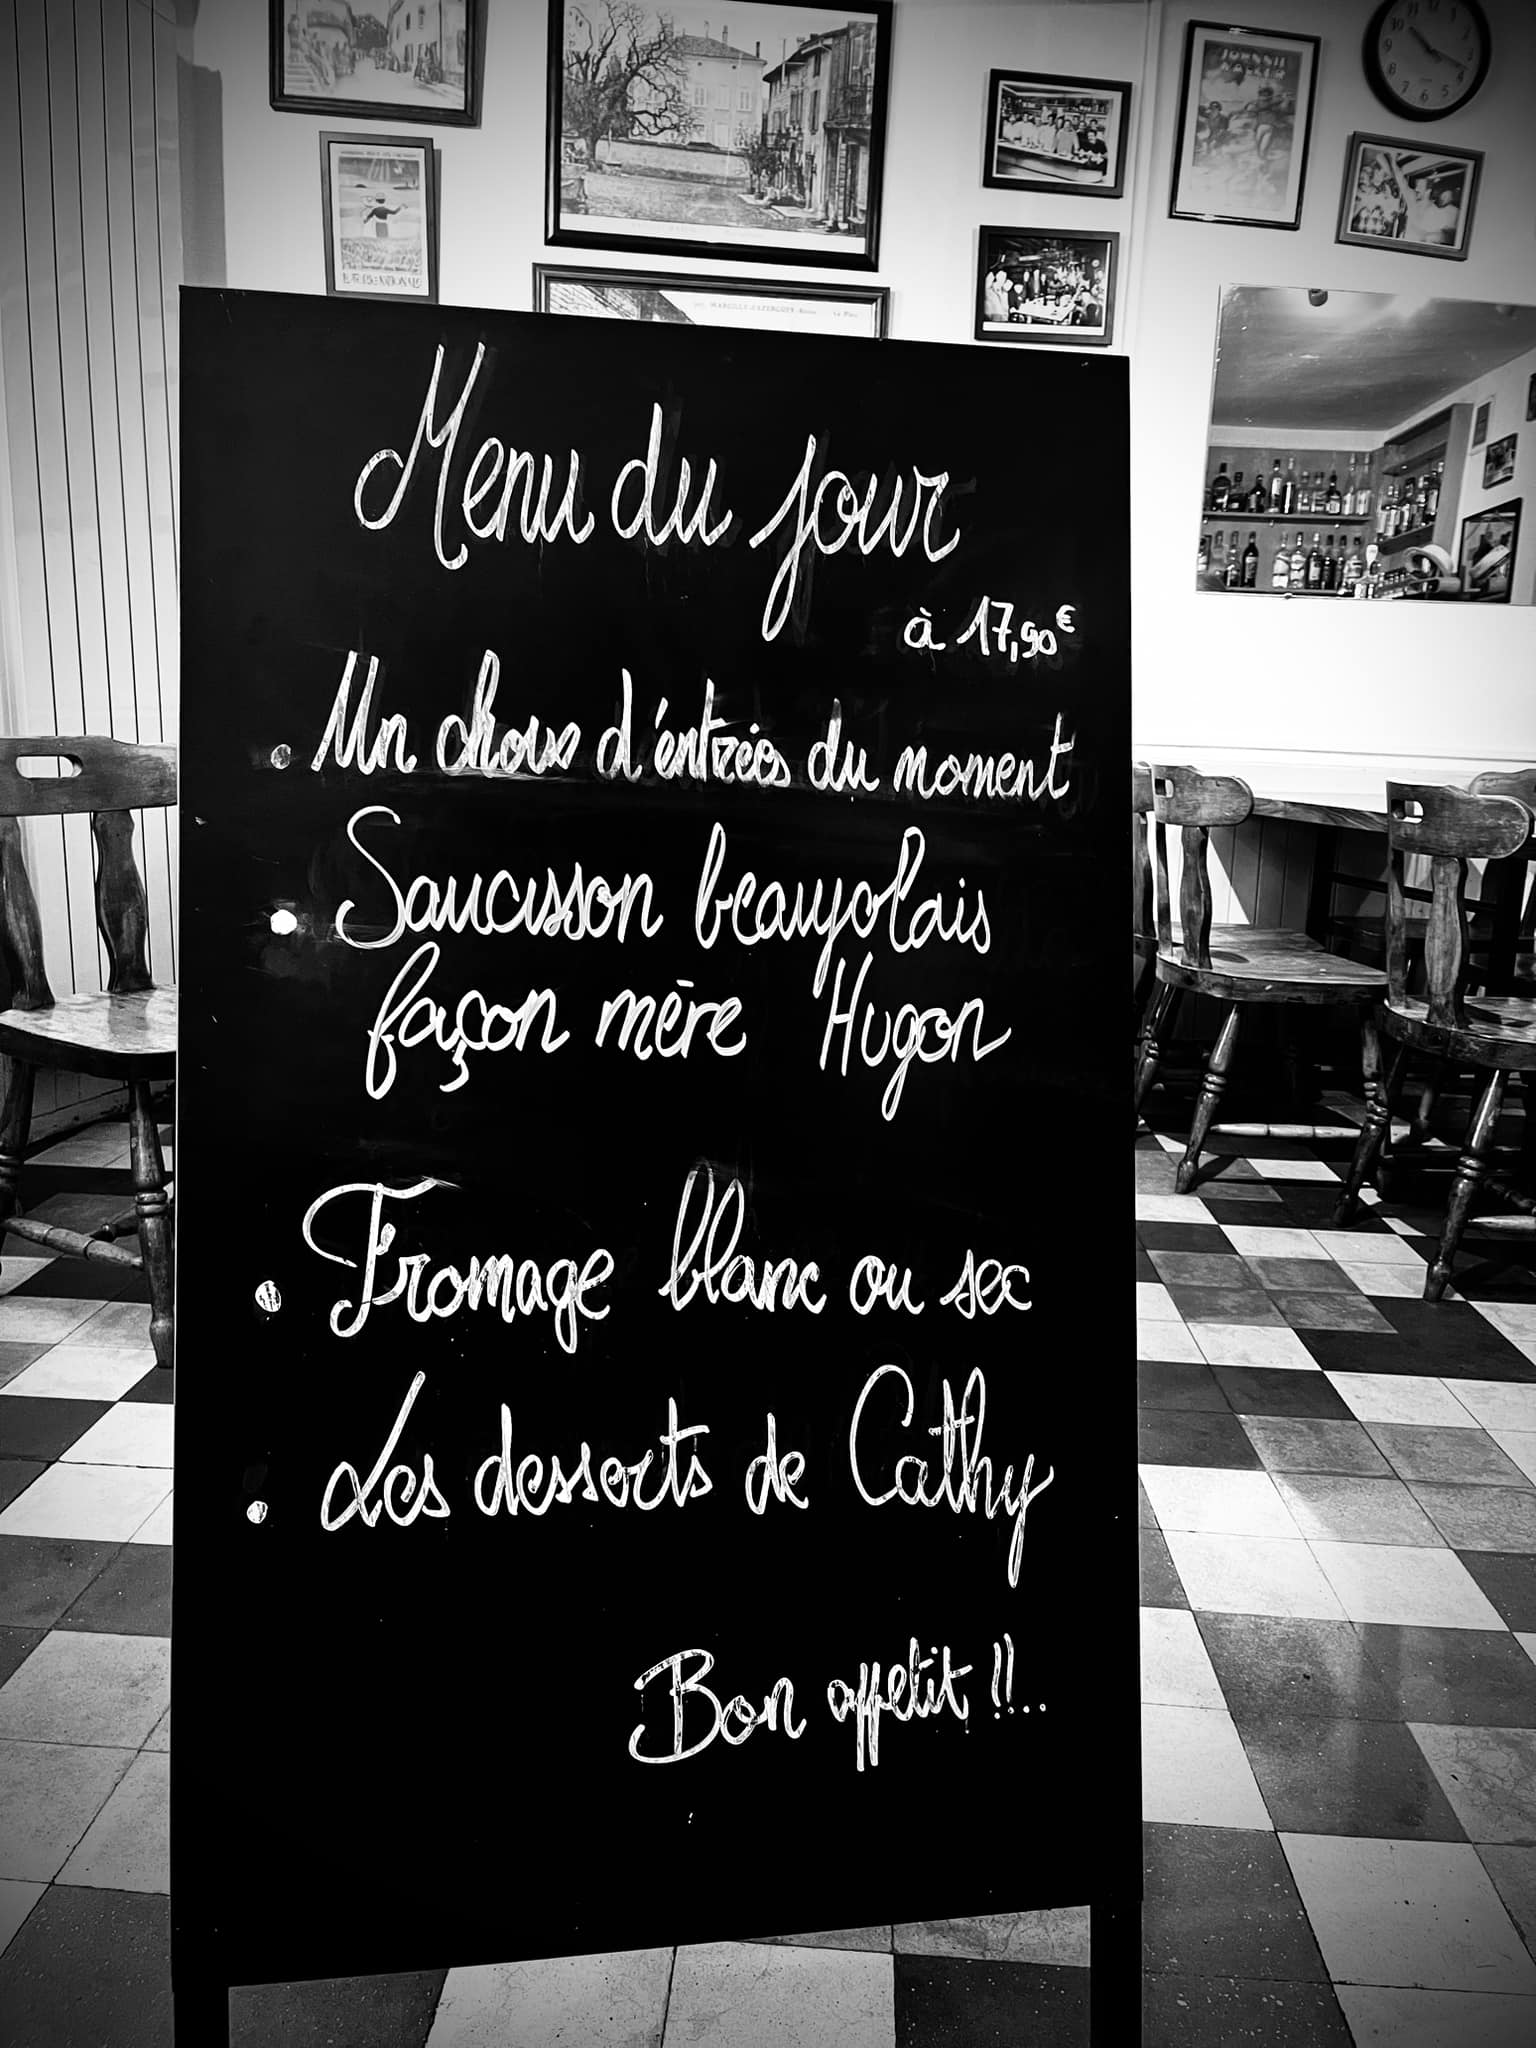 Menu du jour
à 17,90€
. Un choix d'éntrées du moment
. Saucisson beaujolais
façon mère Hugon
. Fromage blanc ou sec
. Les desserts de Cathy
Bon appétit !!..